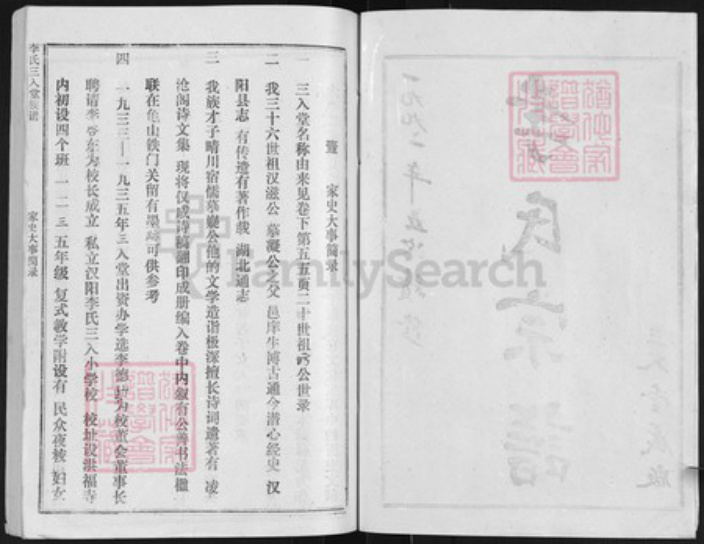 壹 家史大事简录
一 三入堂名称由来见卷下第五五页二十世祖 公世录
二 我三十六世祖汉滋公 墓凝公之父 邑庠生博古通今潜心经史 汉
阳县志 有传遗有著作载 湖北通志
三 我族才子晴川宿儒 公他的文学造诣极深擅长诗词遗著有 凌
沧阁诗文集 现将仅成诗稿翻印成册编入卷中内叙有公善书法楹
联在龟山铁门关留有墨 可供参考
四 一九三三—一九三五年三入堂出资办学选李德 为校董会董事长
聘请李 东为校长成立 私立汉阳李氏三入小学校 校址设洪福寺
内初设四个班 一 二 三 五年级 复式教学附设有 民众夜校 妇女
李氏三入堂族谱
家史大事简录
FamilySearch
李氏宗谱
一九九二年
三入堂藏版